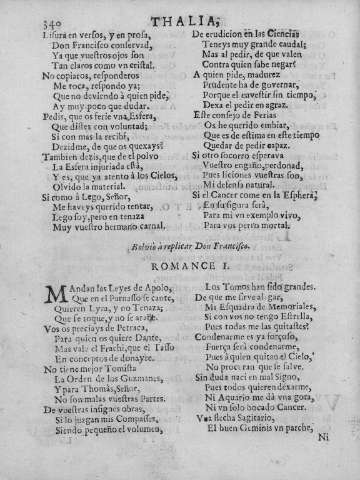 340
THALIA,
Lisura en versos, y en prosa,
Don Francisco conservad,
Ya que vuestros ojos son
Tan claros como vn cristal.
No copiaros, responderos
Me toca, respondo ya;
Que no deviendo à quien pide,
Ay muy poco que dudar.
Pedis, que os ferie vna Esfera,
Que distes con voluntad;
Si con mas la recibi,
Dezidme, de que os quexays?
Tambien dezis, que de el polvo
La Esfera injuriada está,
Y es, que ya atento à los Cielos,
Olvido la material.
Si como à Lego, Señor,
Me haveys querido tentar,
Lego soy, pero en tenaza
Muy vuestro hermano carnal.
De erudicion en las Ciencias
Teneys muy grande caudal;
Mas al pedir, de que valen
Contra quien sabe negar?
A quien pide, madurez
Prudente ha de governar,
Porque el envestir sin tiempo,
Dexa el pedir en agraz.
Este consejo de Ferias
Os he querido embiar,
Que es de estima en este tiempo
Quedar de pedir en paz.
Si otro socorro esperava
Vuestro engaño, perdonad,
Pues liciones vuestras son,
Mi defensa natural.
Si el Cancer come en la Esphera,
En su figura será,
Para mi vn exemplo vivo,
Para vos perro mortal.
Bolviò à replicar Don Francisco.
ROMANCE I.
MAndan las Leyes de Apolo,
Que en el Parnasso se cante,
Quieren Lyra, y no Tenaza;
Que se toque, y no se rasque.
Vos os preciays de Petraca,
Para quien os quiere Dante,
Mas vale el Frachi, que el Tasso
En conceptos de donayre.
No tiene mejor Tomista
La Orden de las Guzmanes,
Y para Thomás, Señor,
No son malas vuestras Partes.
De vuestras insignes obras,
Si lo juzgan mis Compasses,
Siendo pequeño el volumen,
Los Tomos han sido grandes.
De que me sirve alegar,
Mi Esquadra de Memoriales,
Si con vos no tengo Estrella,
Pues todas me las quitastes?
Condenarme es ya forçoso,
Fuerça será condenarme,
Pues à quien quitan el Cielo,
No procuran que se salve.
Sin duda naci en mal Signo,
Pues todos quieren dexarme,
Ni Aquario me dá vna gota,
Ni vn solo bocado Cancer.
Vna flecha Sagitario,
El buen Geminis vn parche,
Ni